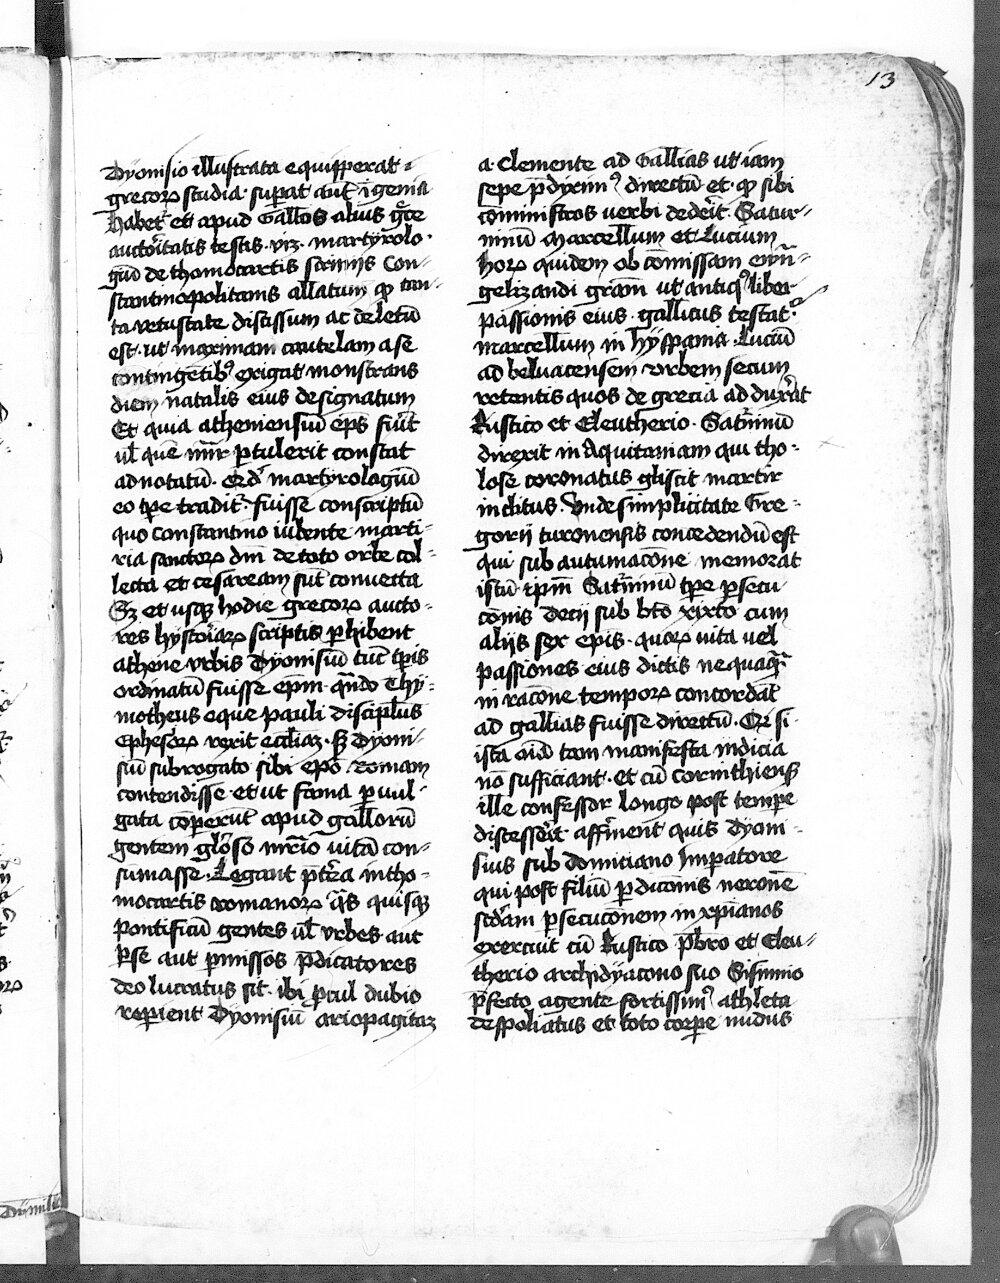 13
Dyonisio illustrata equipperat ⁊
grecoꝝ studia · suꝑat aut̄ īgenia
habet᷑ et apud Gallos alius gͣce
auctoritatis testis · viꝫ · martyrolo
giū de thomocartis scrinijs Con-
stantinopolitanis allatum qͦ tan-
ta vetustate discissum ac deletū
est · ut maximam cautelam a se
contingētibꝰ exigat monstrans
diem natalis eius designatum
Et quia atheniensiū ep̄s fuit̄
ul̄ que᷑ ptulerit constat
adnotatū · Qd̓ martyrologiū
eo tꝑe tradit᷑ · fuisse conscriptū
quo Constantino iubente marti-
ria sanctoꝝ dm̄ de toto orbe col-
lecta et cesaream sūt conuecta
Sꝫ et usqꝫ hodie grecoꝝ aucto-
res hystoriaꝝ scriptis ꝑhibent
athene vrbis Dyonisiū tūc tꝑis
ordinatū fuisse ep̄m · qn̄do Thy-
motheus eque pauli discipl̄us
Ephesoꝝ rexit eccl̄iaꝫ · Sꝫ Dyoni-
siū subrogato sibi ep̄o romam
contendisse et ut fama ꝑuul-
gata coꝑerūt apud galloꝝ
gentem gl̄oso mr̄io uitā con-
sūmasse · Legant p̄t̓ea in tho-
mocartis romanoꝝ qͣs quisqꝫ
pontificū gentes ul̄ vrbes aut
ꝑ se aut ꝑmissos p̄dicatores
deo lucratus sit · ibi ꝓcul dubio
reꝑient Dyonisiū ariopagitaꝫ
a Clemente ad Gallias ut iam
sepe p̄dyximꝰ directū et qͦ sibi
cōministros uerbi dedit̓ Satur-
ninū Marcellum et Lucium
hoꝝ quidem ob cōmissam ewn̄-
gelizandi gr̄am ut antiqꝰ liber
passionis eius · gallicus testat᷑
marcellum in hyspania · luciū
ad beluacensem vrbem secum
retentis quos de grecia adduxͣat
Rustico et Eleutherio · Sat̓ninū
direxit in Aquitaniam qui tho-
lose coronatus gliscit martir
inclitus · Vnde simplicitate Gre-
gorij turonensis concedendū est
qui sub autumacōne memorat
istū ip̄m Sat̓ninū tꝑe ꝑsecu
cōnis Decij sub bt̄o xixto cum
alijs sex ep̄is · quoꝝ uita uel
passiones eius dictis nequaqͣ
in racōne tempoꝝ concordāt
ad gallias fuisse directū · Qꝛ si
ista oīa tam manifesta indicia
nō sufficiant · et cū corinthiensꝫ
ille confessor longo post tempe
discesserit affirment quis Dyoni-
sius sub domiciano Imperatore
qui post filiū ꝑdicionis neronē
scd̓am ꝑsecucōnem in xp̄ianos
exercuit cū Rustico p̄bro et Eleu-
therio archidyacono suo Sisinnio
p̄fecto agente fortissimꝰ athleta
despoliatus et toto corꝑe nudus